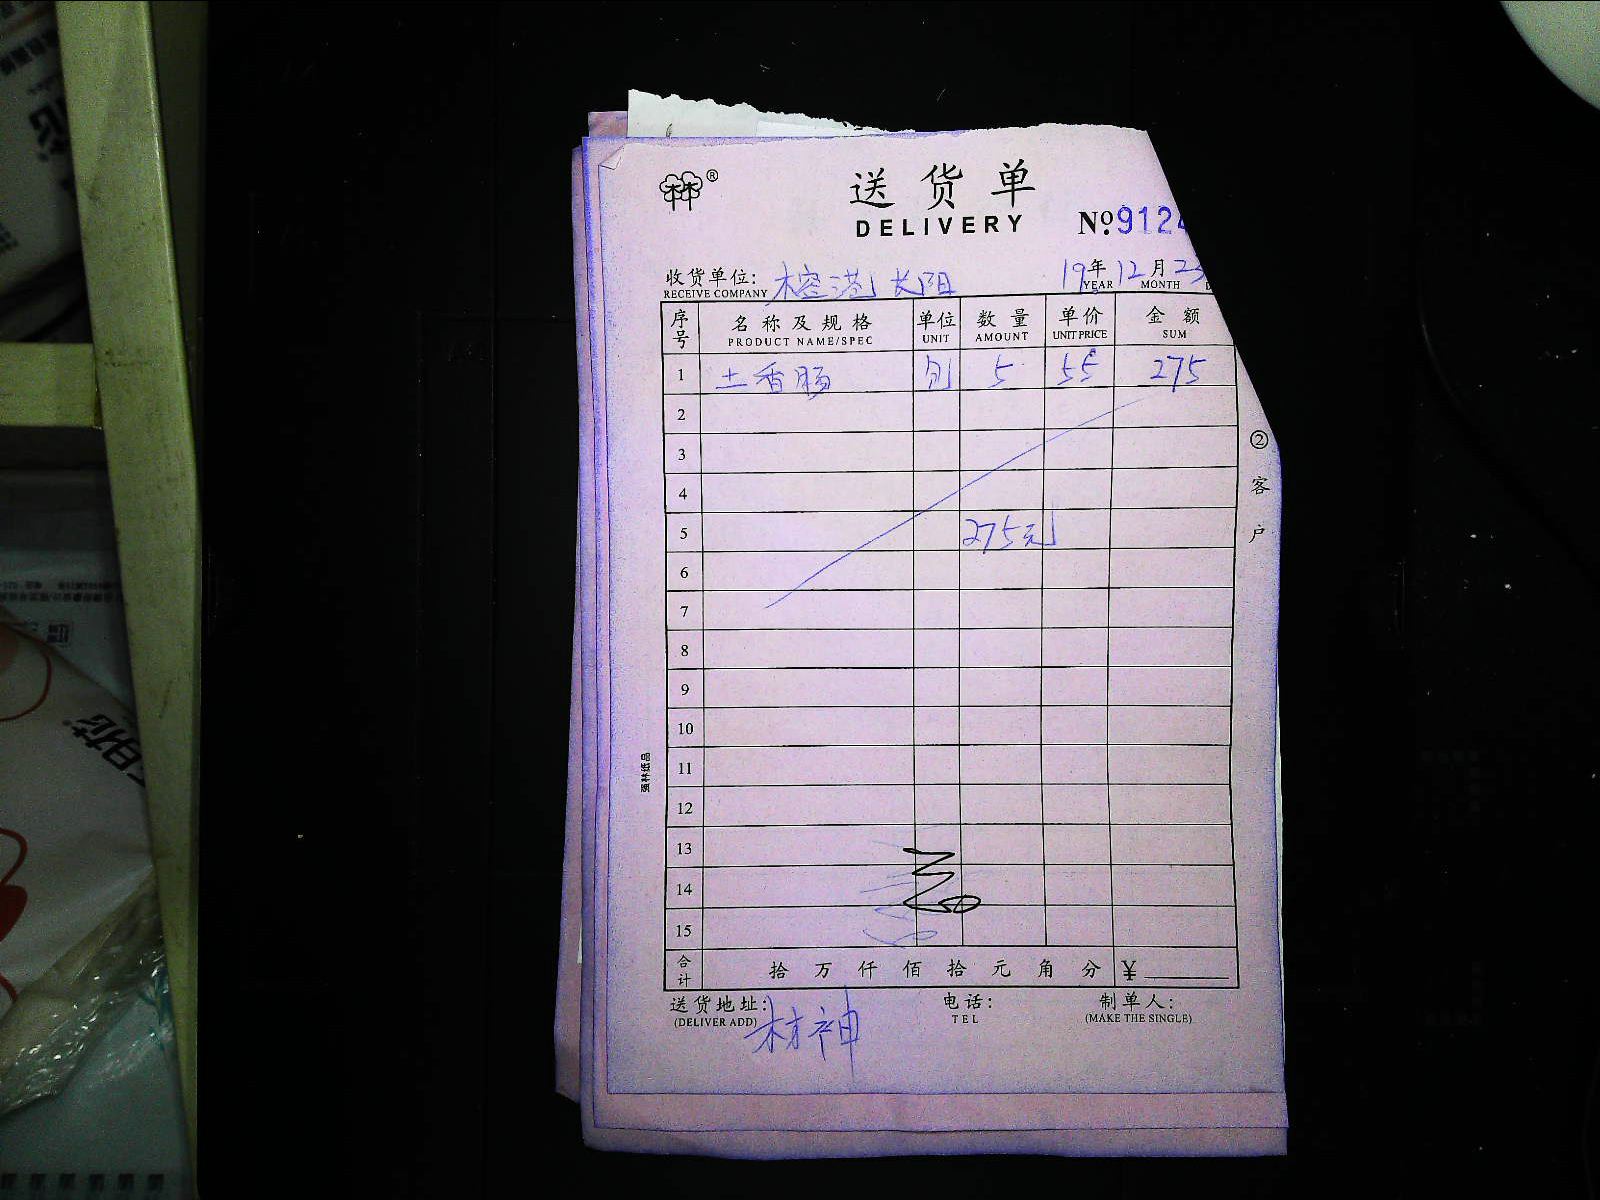 林®
送货单
DELIVERY
№.9124
收货单位: 榕港 长阳 19年12月23
RECEIVE COMPANY YEAR MONTH
序号 名称及规格 单位 数量 单价 金额
PRODUCT NAME/SPEC UNIT AMOUNT UNIT PRICE SUM
1 土香肠 5 55 275
2
3
4
5 275元
6
7
8
9
10
11
12
13
14
15
合计 拾 万 仟 佰 拾 元 角 分 ¥
送货地址: 材神 电话: 制单人:
(DELIVER ADD) TEL (MAKE THE SINGLE)
②客户
强林纸品